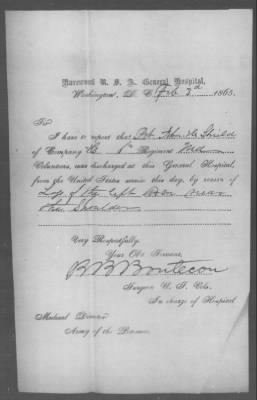 Harewood U. S. A. General Hospital,
Washington, D. C. Feb 3d 1865.
To
I have to report that Pvt John Mc Shields
of Company Regiment
Volunteers, was discharged at this General Hospital,
from the United States service this day, by reason of
Loss of the left Arm near
the Shoulder
Very Respectfully,
Your Obt. Servant,
R B Bontecou
Surgeon U. S. Vols.
In charge of Hospital
Medical Director
Army of the Potomac.